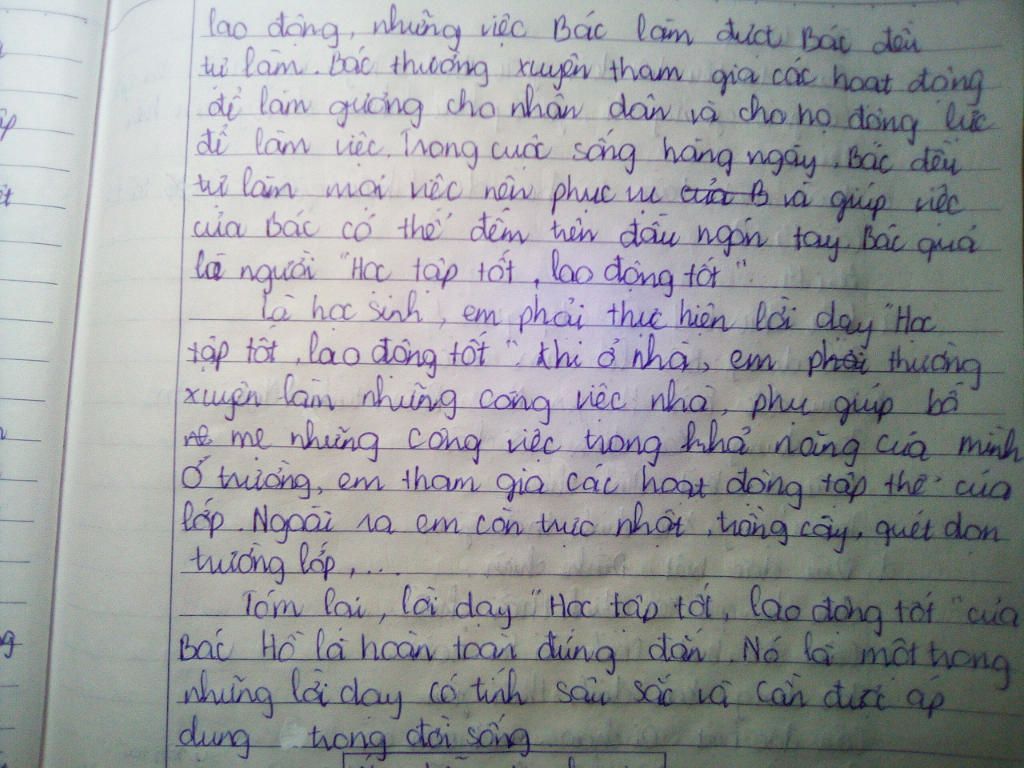 lao động, những việc Bác làm được Bác đều
tự làm. Bác thường xuyên tham gia các hoạt động
để làm gương cho nhân dân và cho họ động lực
để làm việc. Trong cuộc sống hàng ngày, Bác đều
tự làm mọi việc nên phục vụ của B và giúp việc
của Bác có thể đếm trên đầu ngón tay. Bác quả
là người "Học tập tốt, lao động tốt".
Là học sinh, em phải thực hiện lời dạy "Học
tập tốt, lao động tốt". Khi ở nhà, em phải thường
xuyên làm những công việc nhà, phụ giúp bố
mẹ những công việc trong khả năng của mình
Ở trường, em tham gia các hoạt động tập thể của
lớp. Ngoài ra em còn trực nhật, trồng cây, quét dọn
trường lớp,...
Tóm lại, lời dạy "Học tập tốt, lao động tốt" của
Bác Hồ là hoàn toàn đúng đắn. Nó là một trong
những lời dạy có tính sâu sắc và cần được áp
dụng trong đời sống